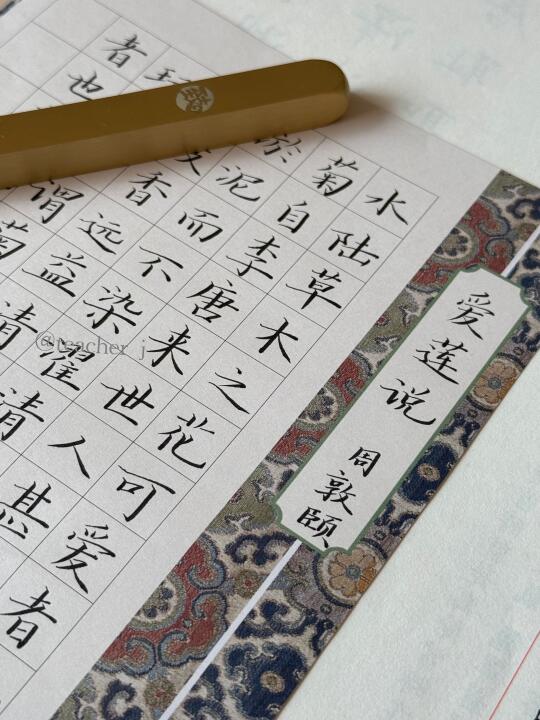 爱莲说
周敦颐
水陆草木之花可爱者
菊自李唐来世人甚
泥而不染濯清
香远益清
谓菊
者也
@teacher_j